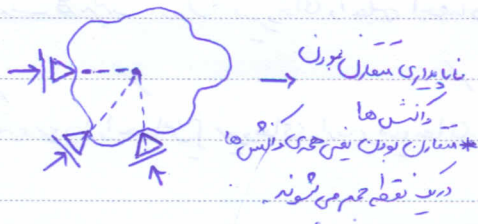 ناپایداری متقارن بودن
واکنش ها
* متقارن بودن یعنی همه ی واکنش ها
در یک نقطه جمع می شوند.